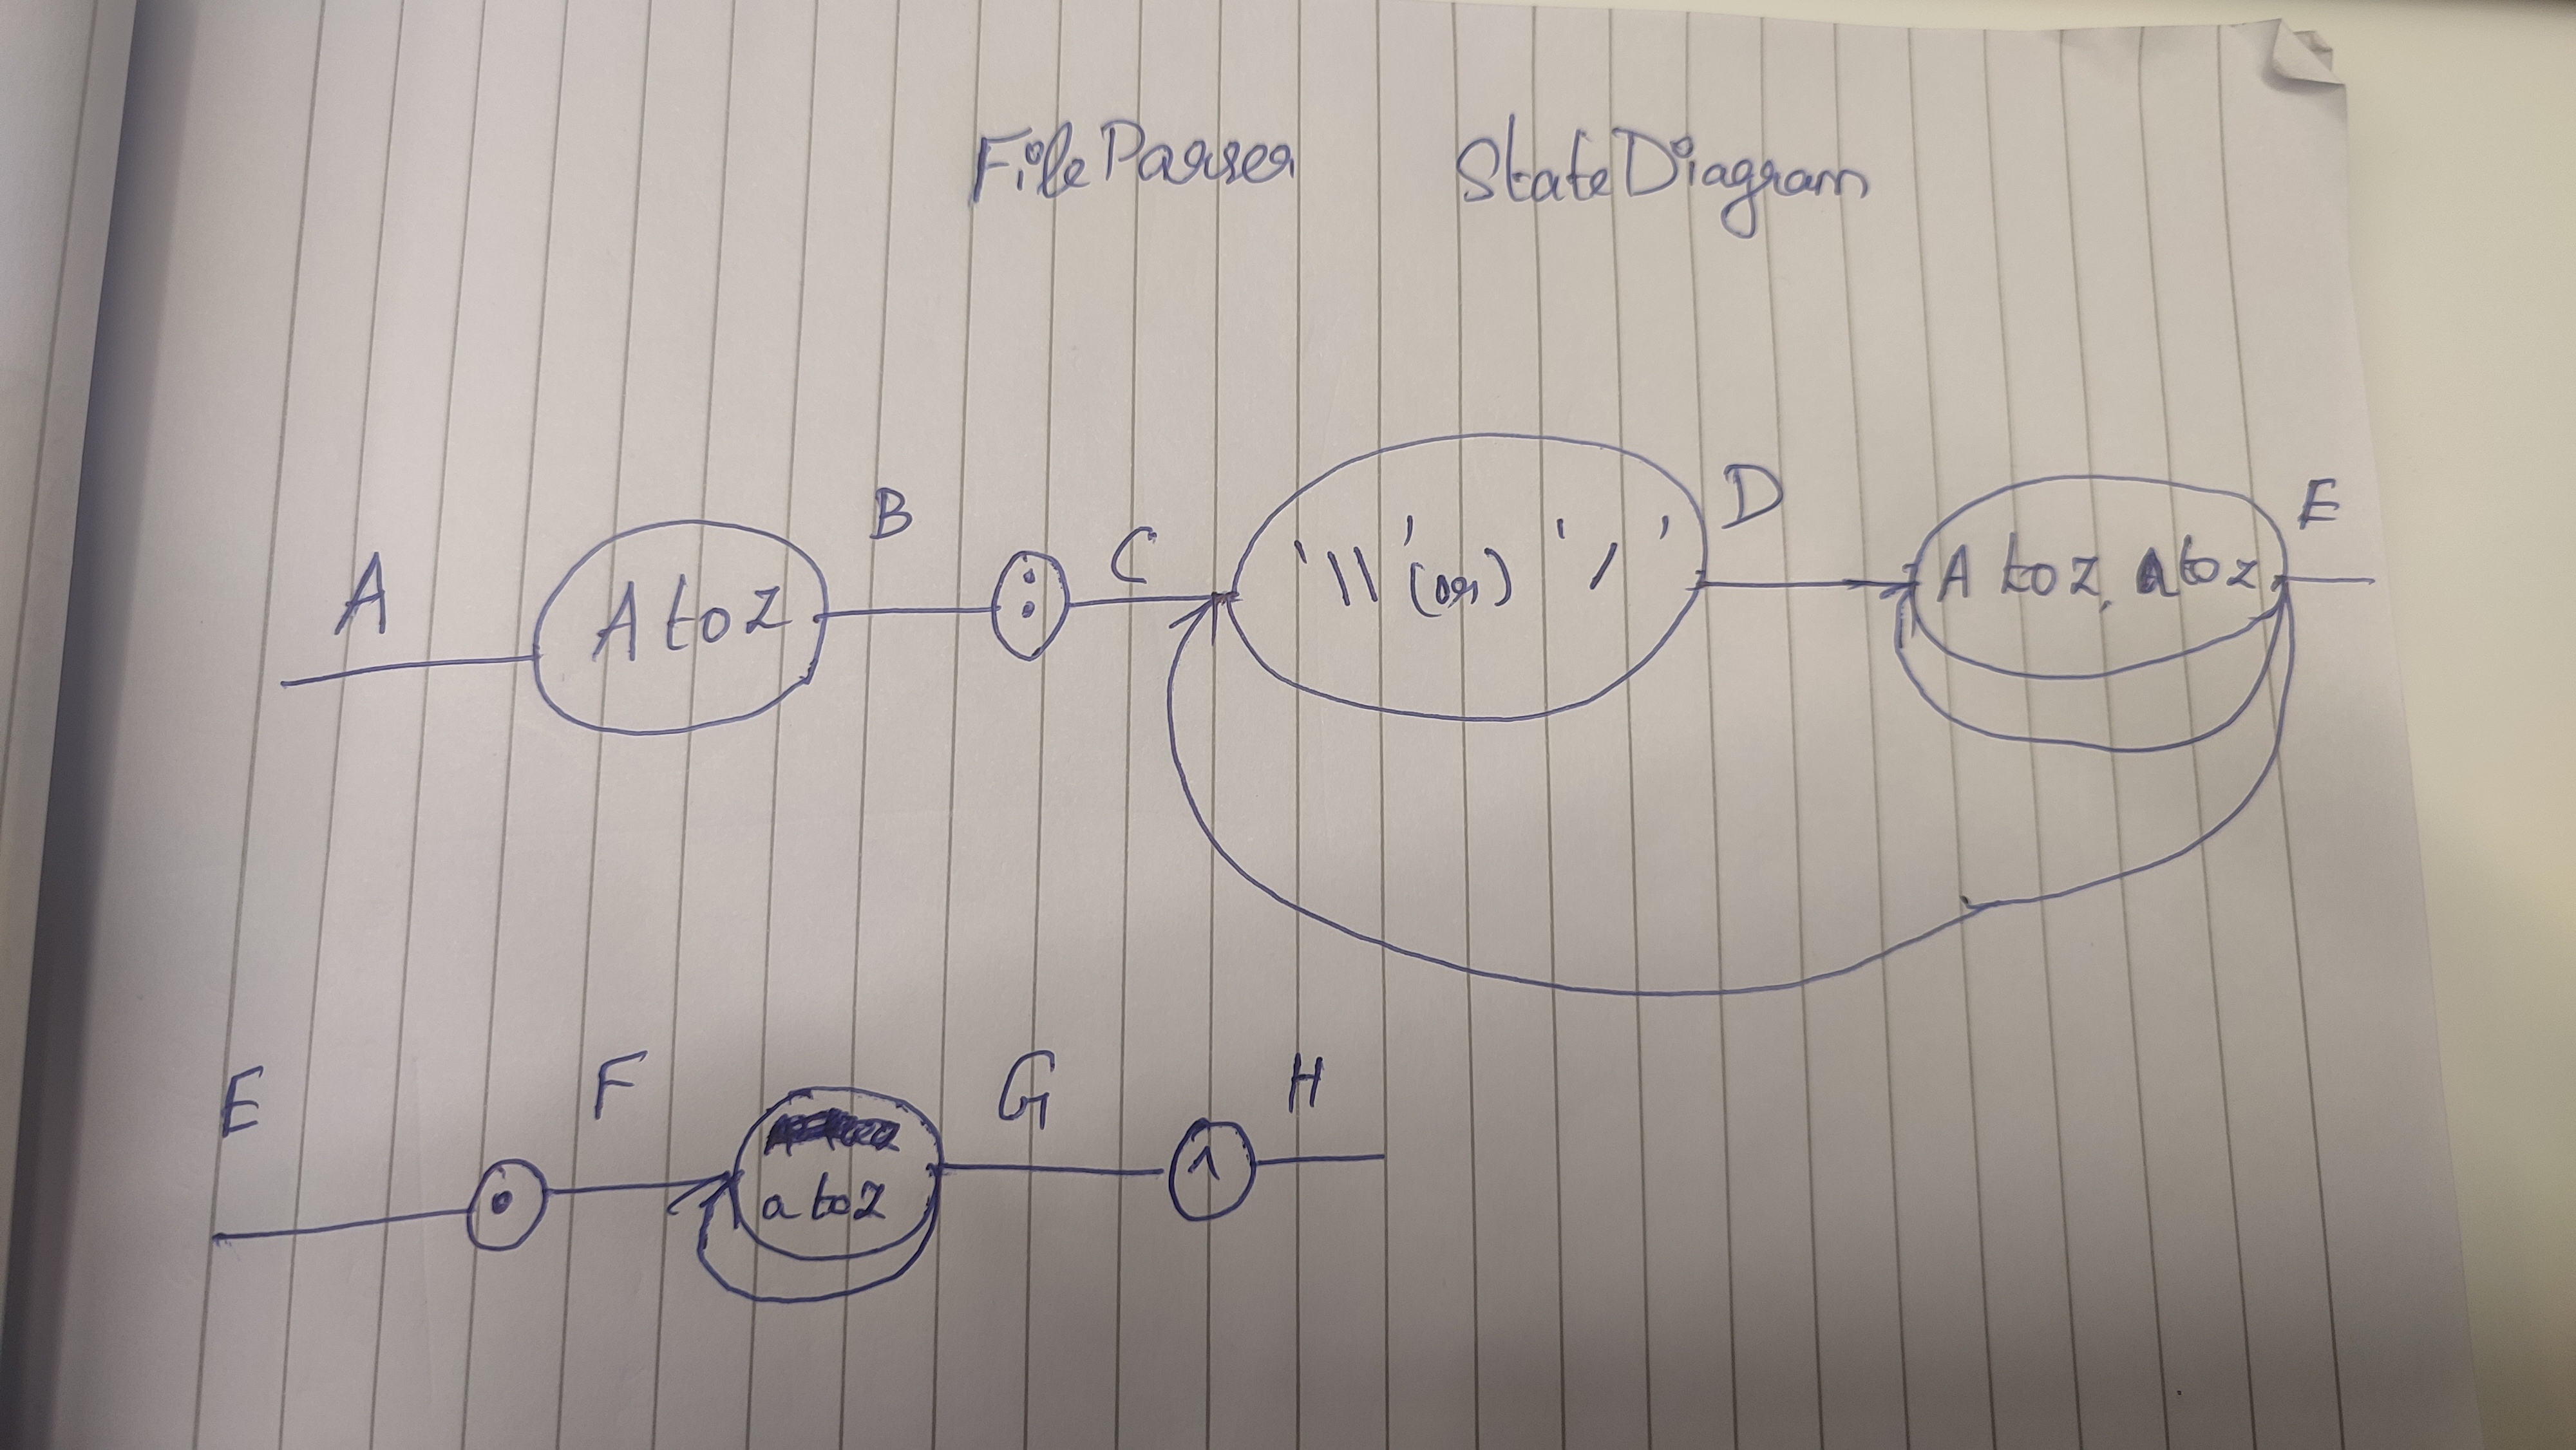 FileParser StateDiagram
A
A to Z
B
:
C
'\\' (or) '/'
D
A to Z, a to z
E
E
.
F
a to z
G
^
H